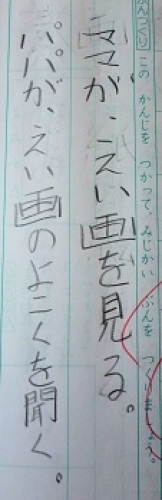 ぶんづくり この かんじを つかって、みじかい ぶんを つくりましょう。
ママが、えい画を見る。
パパが、えい画のよこくを聞く。